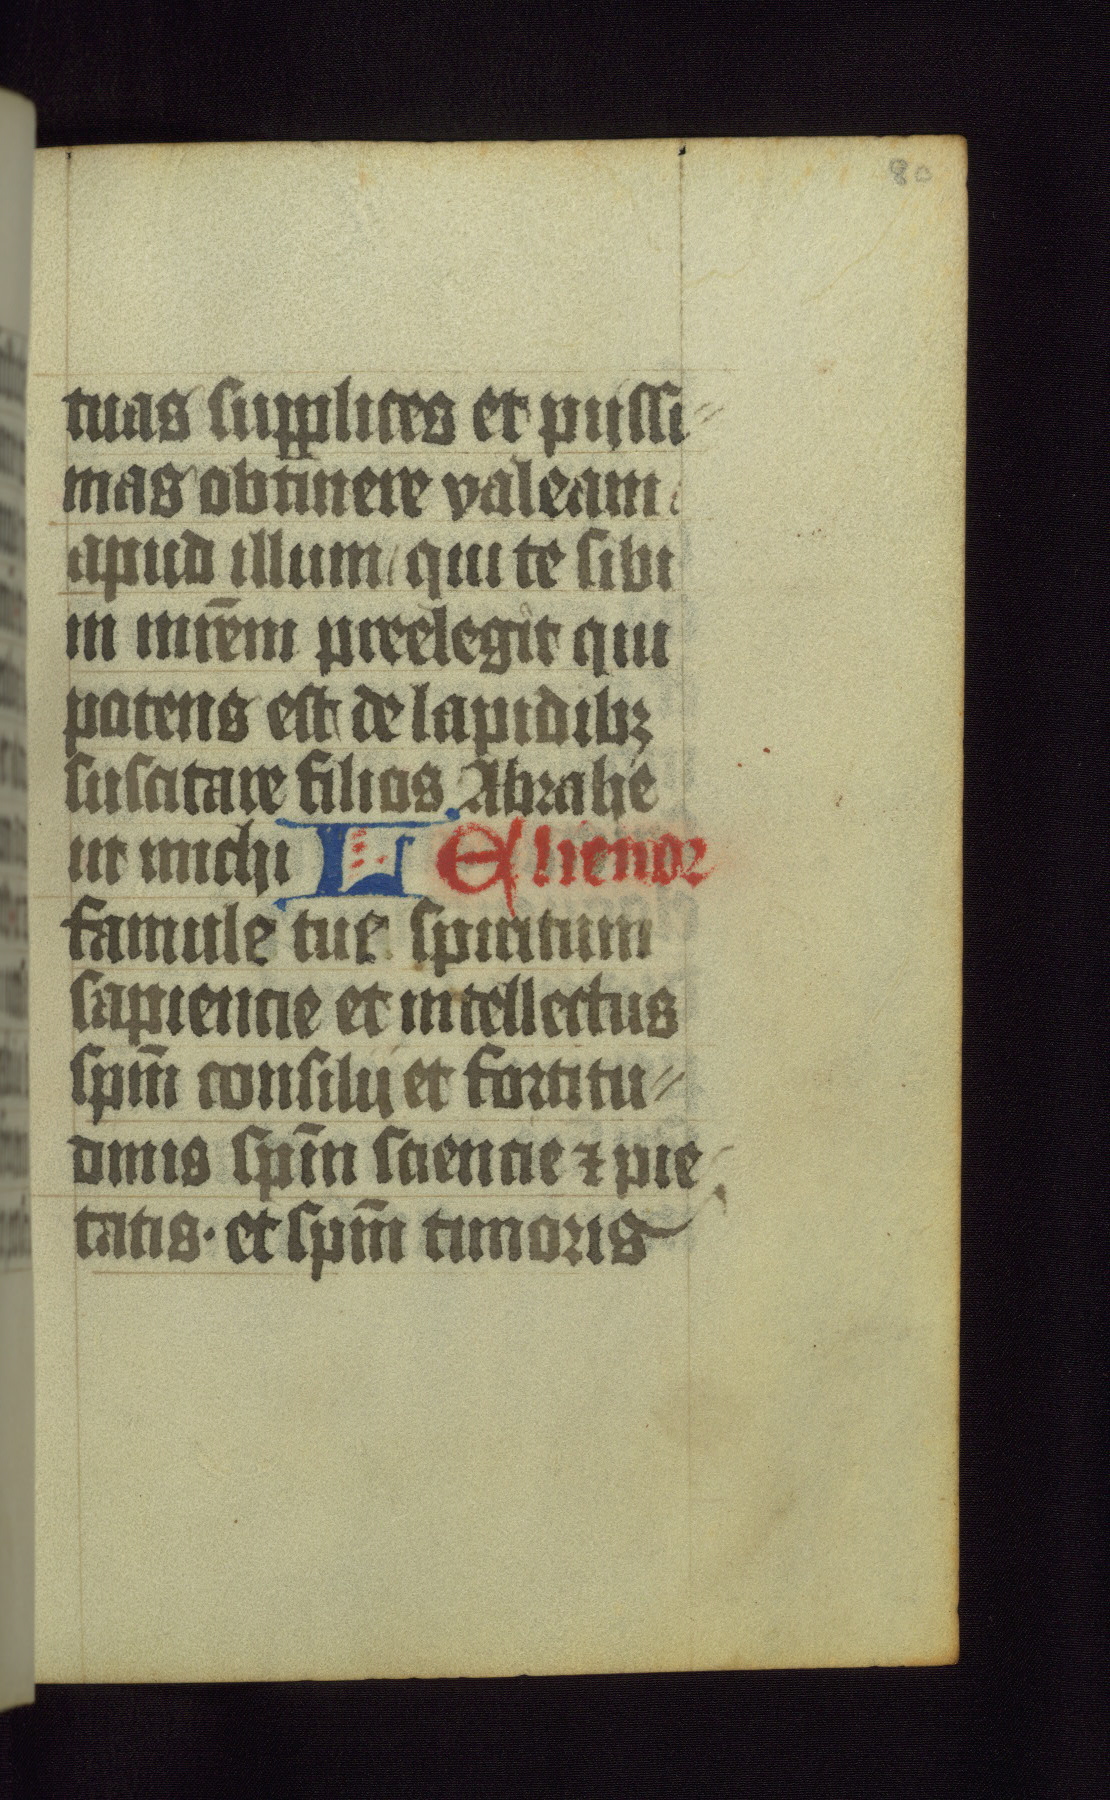 80
tuas supplices et pijssi=
mas obtinere valeam
apud illum/ qui te sibi
in mrēm preelegit qui
potens est de lapidibꝫ
suscitare filios Abrahe
ut michi L Elienor
famule tue spiritum
sapiencie et intellectus
spm̄ consilij et fortitu=
dinis spm̄ sciencie ⁊ pie
tatis · et spm̄ timoris